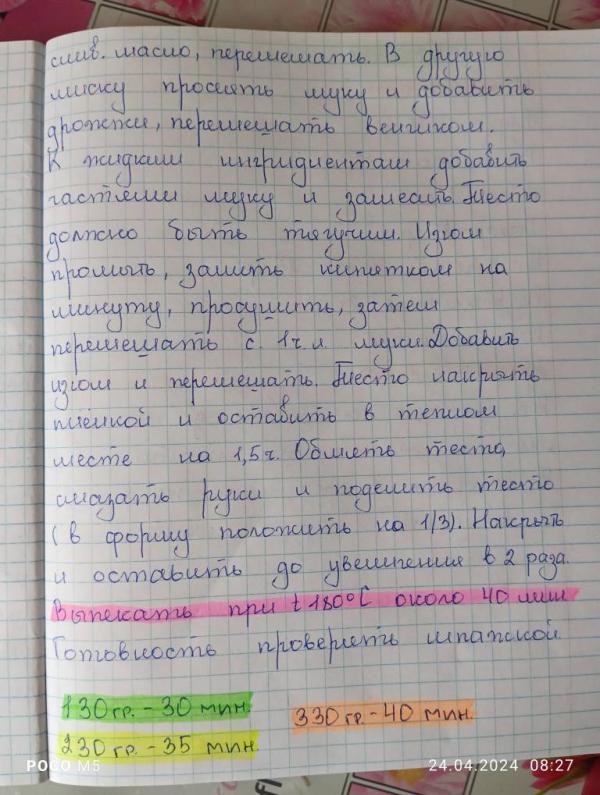 слив. масло, перемешать. В другую
миску просеять муку и добавить
дрожжи, перемешать венчиком.
К жидким ингридиентам добавить
частями муку и замесить. Тесто
должно быть тягучим. Изюм
промыть, залить кипятком на
минуту, просушить, затем
перемешать с 1 ч.л. муки. Добавить
изюм и перемешать. Тесто накрыть
плёнкой и оставить в теплом
месте на 1,5 ч. Обмять тесто,
смазать руки и поделить тесто
(в форму положить на 1/3). Накрыть
и оставить до увеличения в 2 раза.
Выпекать при t 180°C около 40 мин
Готовность проверять шпажкой.
130 гр. - 30 мин.
330 гр. - 40 мин.
230 гр. - 35 мин.
POCO M5
24.04.2024 08:27